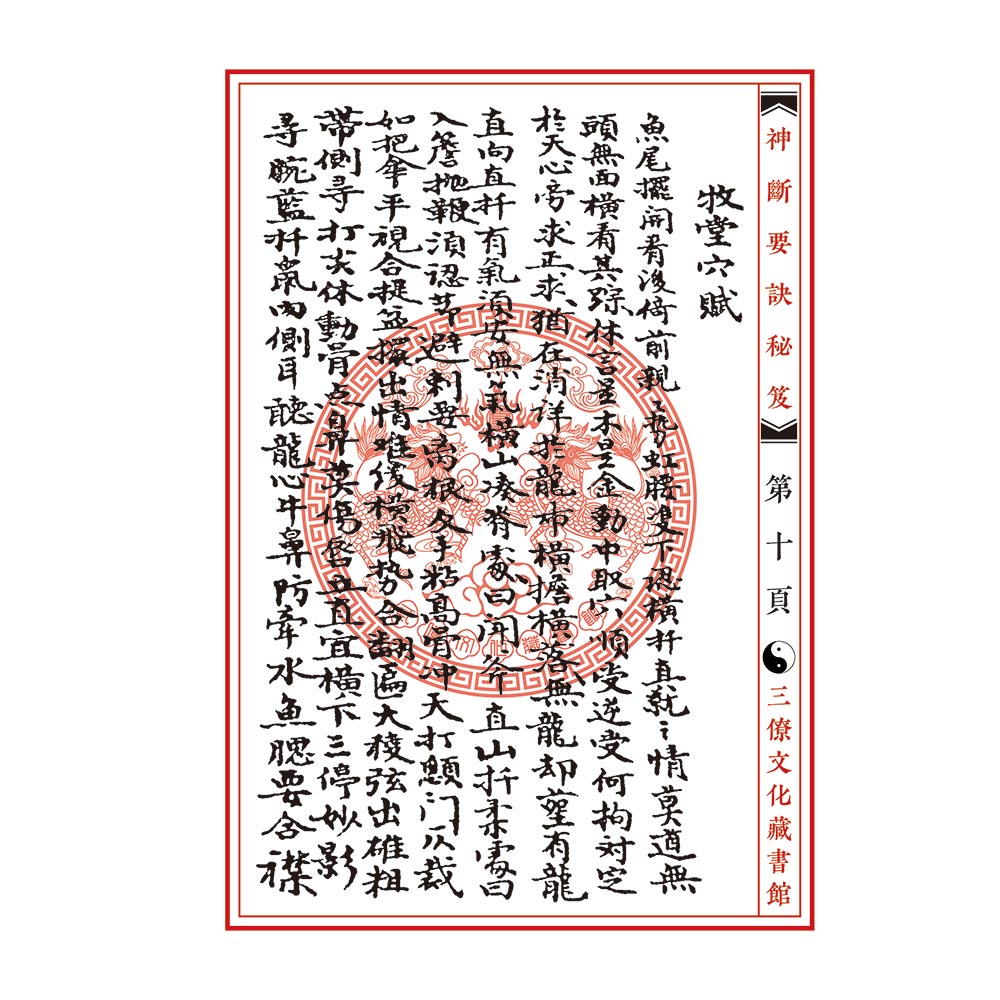 神斷要訣秘笈
第十頁
三僚文化藏書館
牧堂穴賦
魚尾擺開看後倚前親虹腰雙下認橫扦直就之情莫道無
頭無面橫看其踪休言是木是金動中取穴順受逆受何拘対定
扵天心旁求正求猶在消詳扵龍布橫擔橫落無龍却塟有龍
直向直扦有氣須安無氣橫山湊脊處曰開斧直山扦柔處曰
入簷抛鞭須認節避刺要离根反手粘高骨冲天打顖门仄裁
如把傘平視合提盆擺出情难緩橫飛势合翻匾大稜弦出雄粗
帶側尋打尖休動骨点鼻莫傷唇立直宜橫下三停妙影
尋腕藍扦鼠肉側耳聽龍心牛鼻防牽水魚腮要合襟